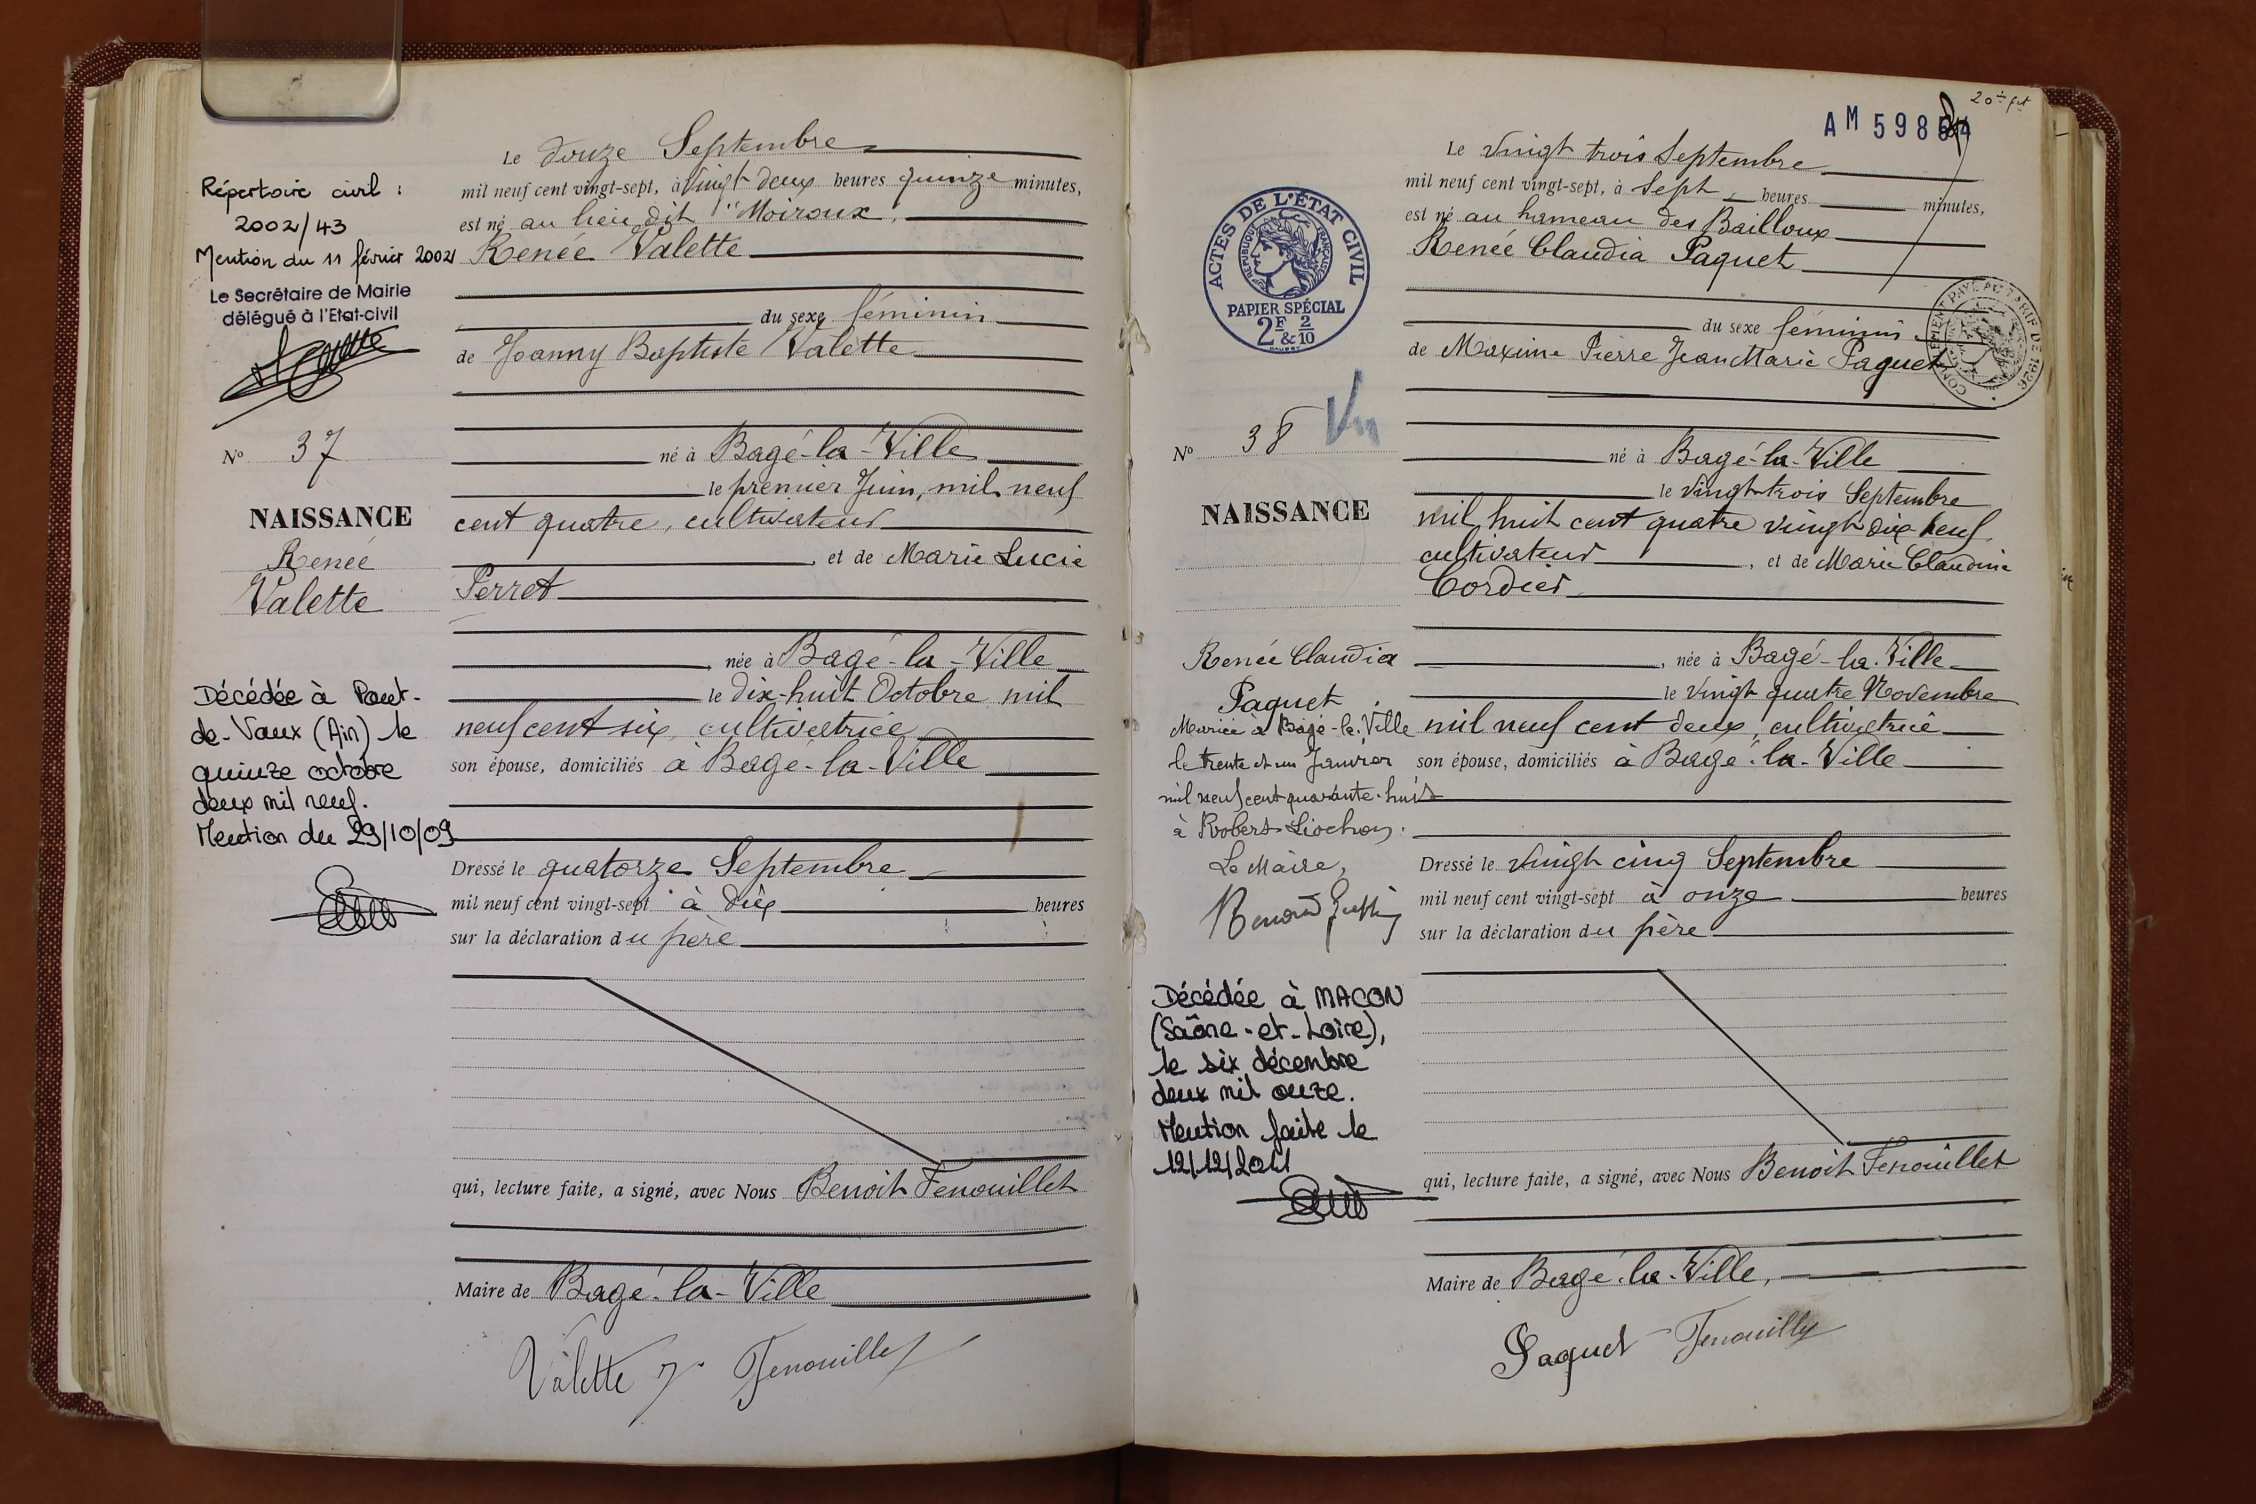 Le douze Septembre
mil neuf cent vingt-sept, à vingt deux heures quinze minutes,
est né au lieu dit "Moiroux
Renée Valette
du sexe féminin
de Joanny Baptiste Valette
né à Bagé-la-Ville
le premier Juin, mil neuf
cent quatre, cultivateur
, et de Marie Lucie
Perret
, née à Bagé-la-Ville
le dix-huit Octobre mil
neuf cent six, cultivatrice
son épouse, domiciliés à Bagé-la-Ville
Dressé le quatorze Septembre
mil neuf cent vingt-sept à dix heures
sur la déclaration du père
qui, lecture faite, a signé, avec Nous Benoit Fenouillet
Maire de Bagé-la-Ville
Valette J. Fenouillet
Répertoire civil :
2002/43
Mention du 11 février 2002
Le Secrétaire de Mairie
délégué à l'Etat-civil
No 37
NAISSANCE
Renée
Valette
Décédée à Pont-
de-Vaux (Ain) le
quinze octobre
deux mil neuf.
Mention du 29/10/09
AM 598
ACTES DE L'ÉTAT CIVIL
RÉPUBLIQUE FRANÇAISE
PAPIER SPÉCIAL
2F & 2/10
COMPLÉMENT PAYÉ AU TARIF DE 1926
Le vingt trois Septembre
mil neuf cent vingt-sept, à Sept heures minutes,
est né au hameau des Bailloux
Renée Claudia Paquet
du sexe féminin
de Maxime Pierre Jean Marie Paquet
né à Bagé-la-Ville
le vingt-trois Septembre
mil huit cent quatre vingt dix neuf
cultivateur , et de Marie Claudine
Cordier
, née à Bagé-la-Ville
le vingt quatre Novembre
mil neuf cent deux, cultivatrice
son épouse, domiciliés à Bagé-la-Ville
Dressé le vingt cinq Septembre
mil neuf cent vingt-sept à onze heures
sur la déclaration du père
qui, lecture faite, a signé, avec Nous Benoit Fenouillet
Maire de Bagé-la-Ville,
Paquet Fenouillet
No 38 Vu
NAISSANCE
Renée Claudia
Paquet
Mariée à Bagé-la-Ville
le trente et un Janvier
mil neuf cent quarante-huit
à Robert Liochon.
Le Maire,
Décédée à MACON
(Saône-et-Loire),
le six décembre
deux mil onze.
Mention faite le
12/12/2011